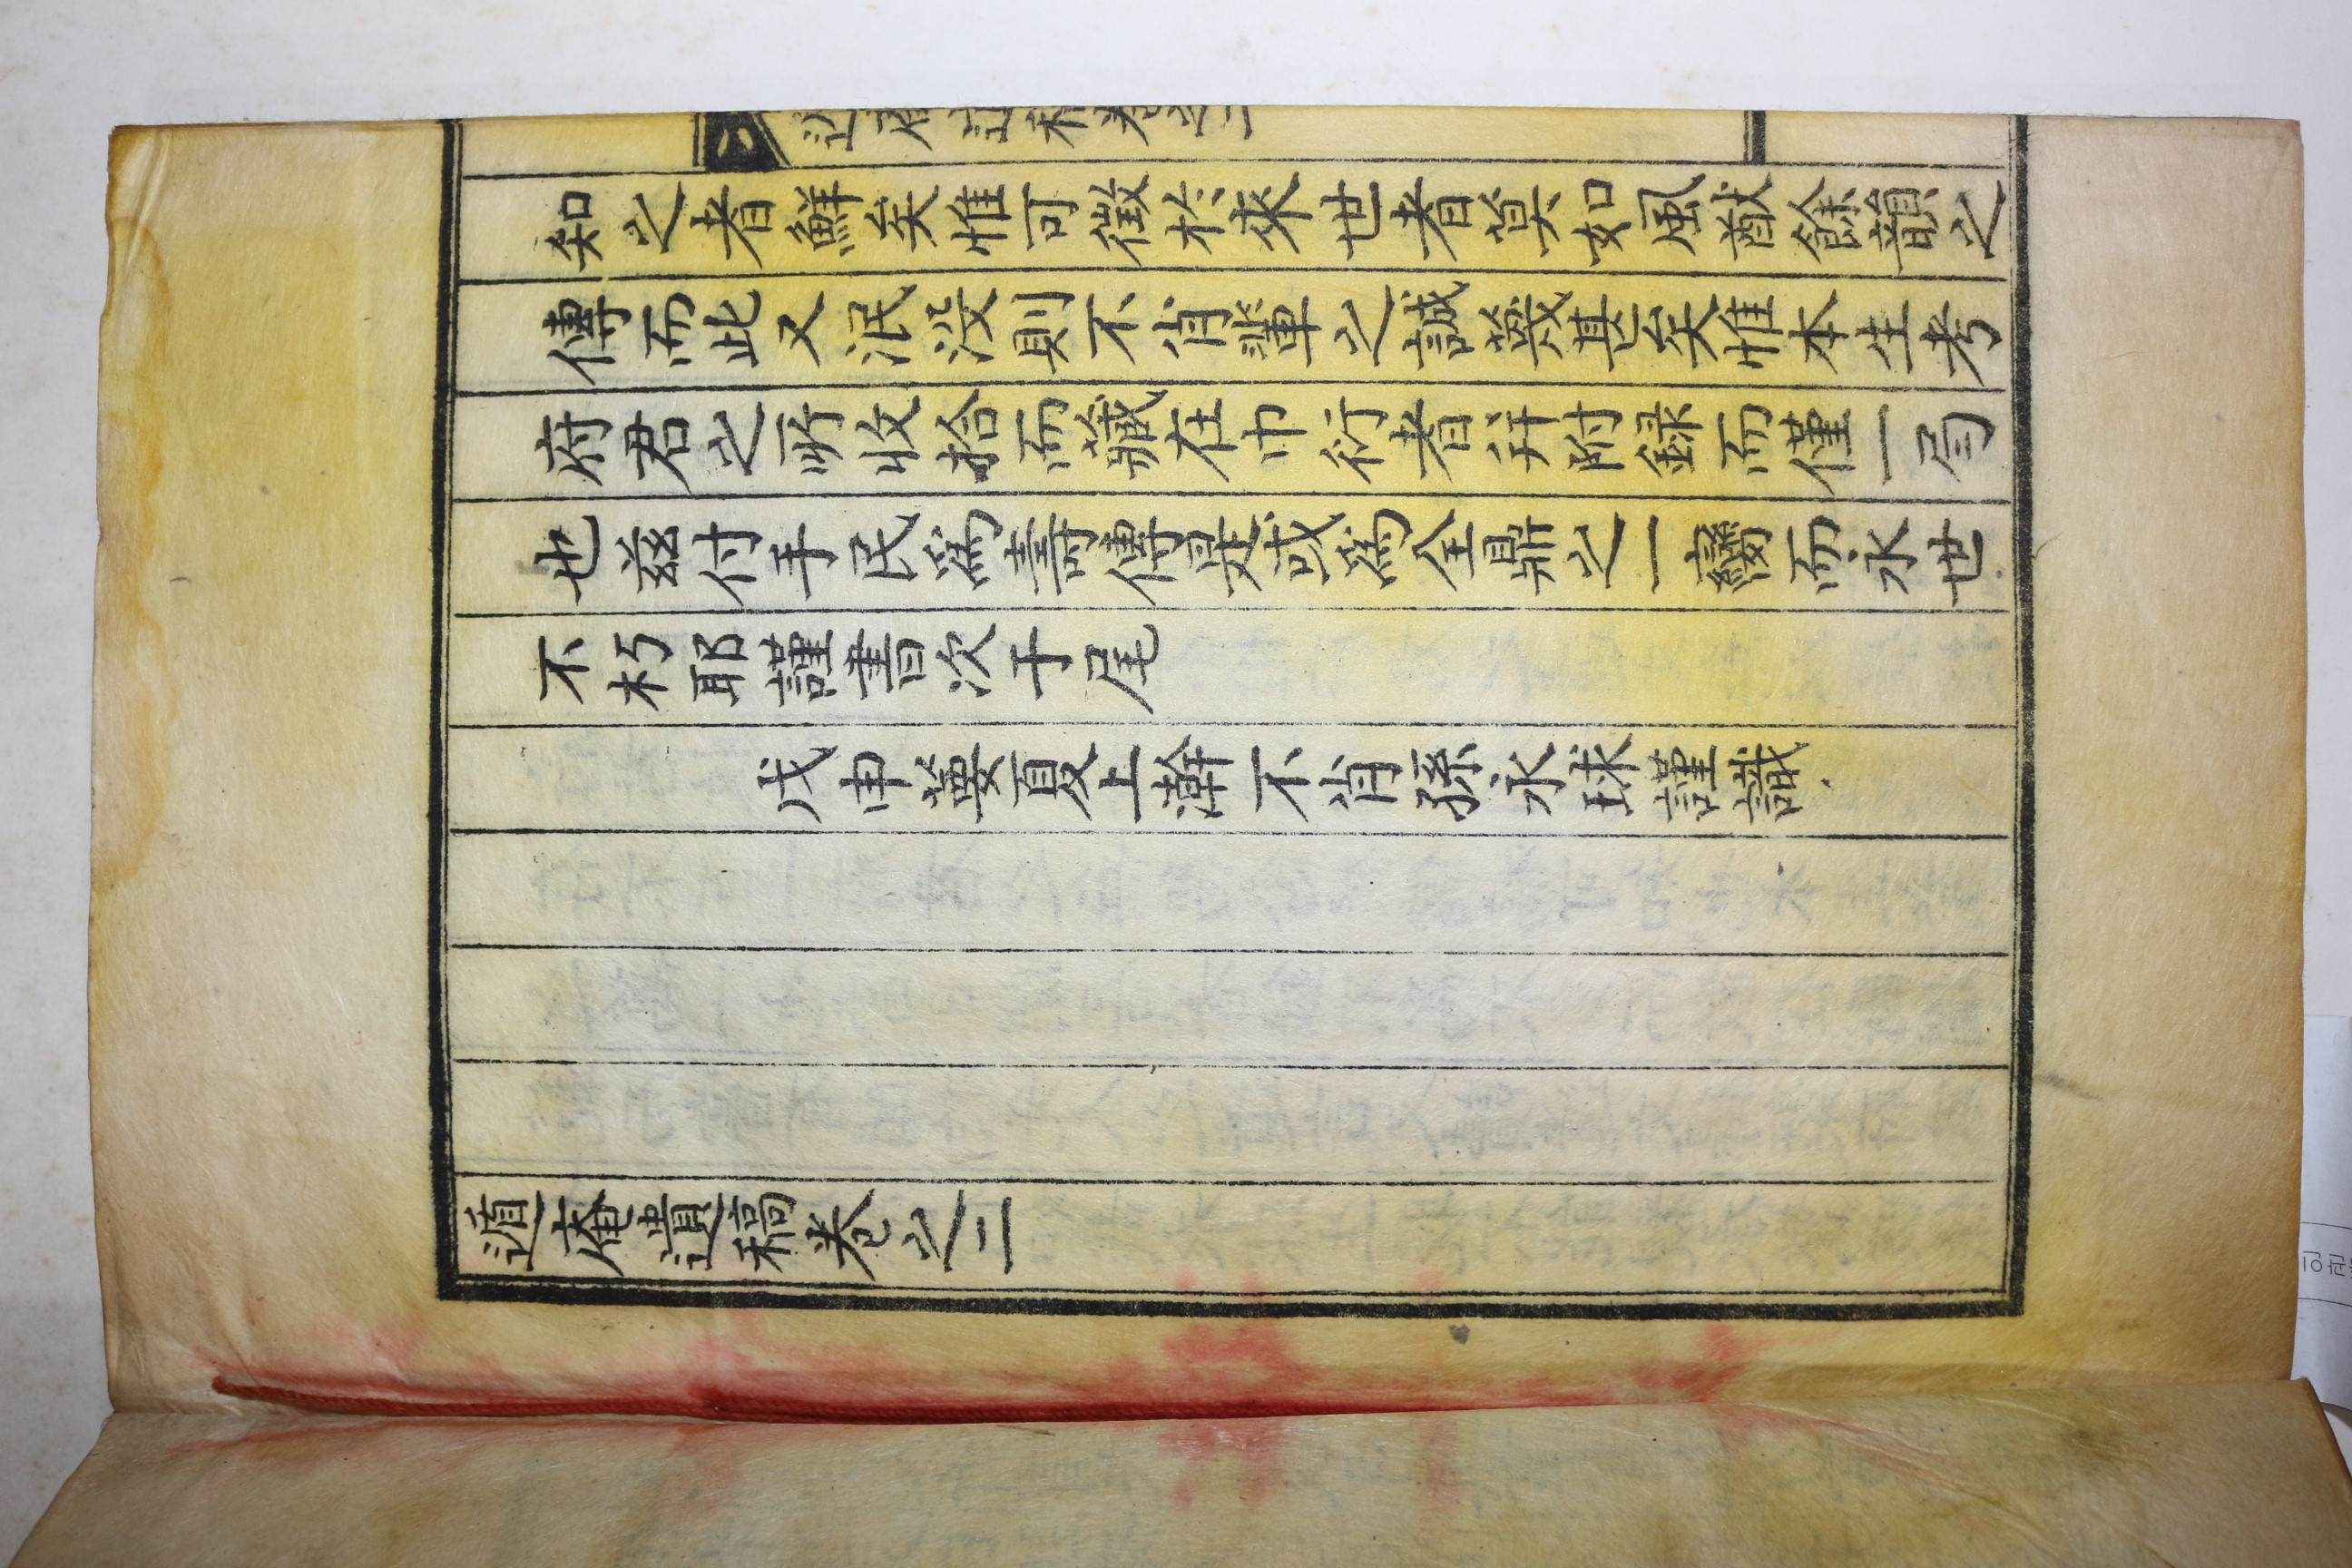 知之者鮮矣惟可徵於來也者莫如風猷餘韻之
傳而此又泯沒則不肖輩之誠籛甚矣惟本生考
府君之所收拾而藏在巾衍者幷附錄而僅一局
也玆付手民爲壽傳是或爲全鼎之一臠而永世
不朽耶謹書次于尾
戊申蓂夏上澣不肖孫永球謹識
遁庵遺稿卷之二